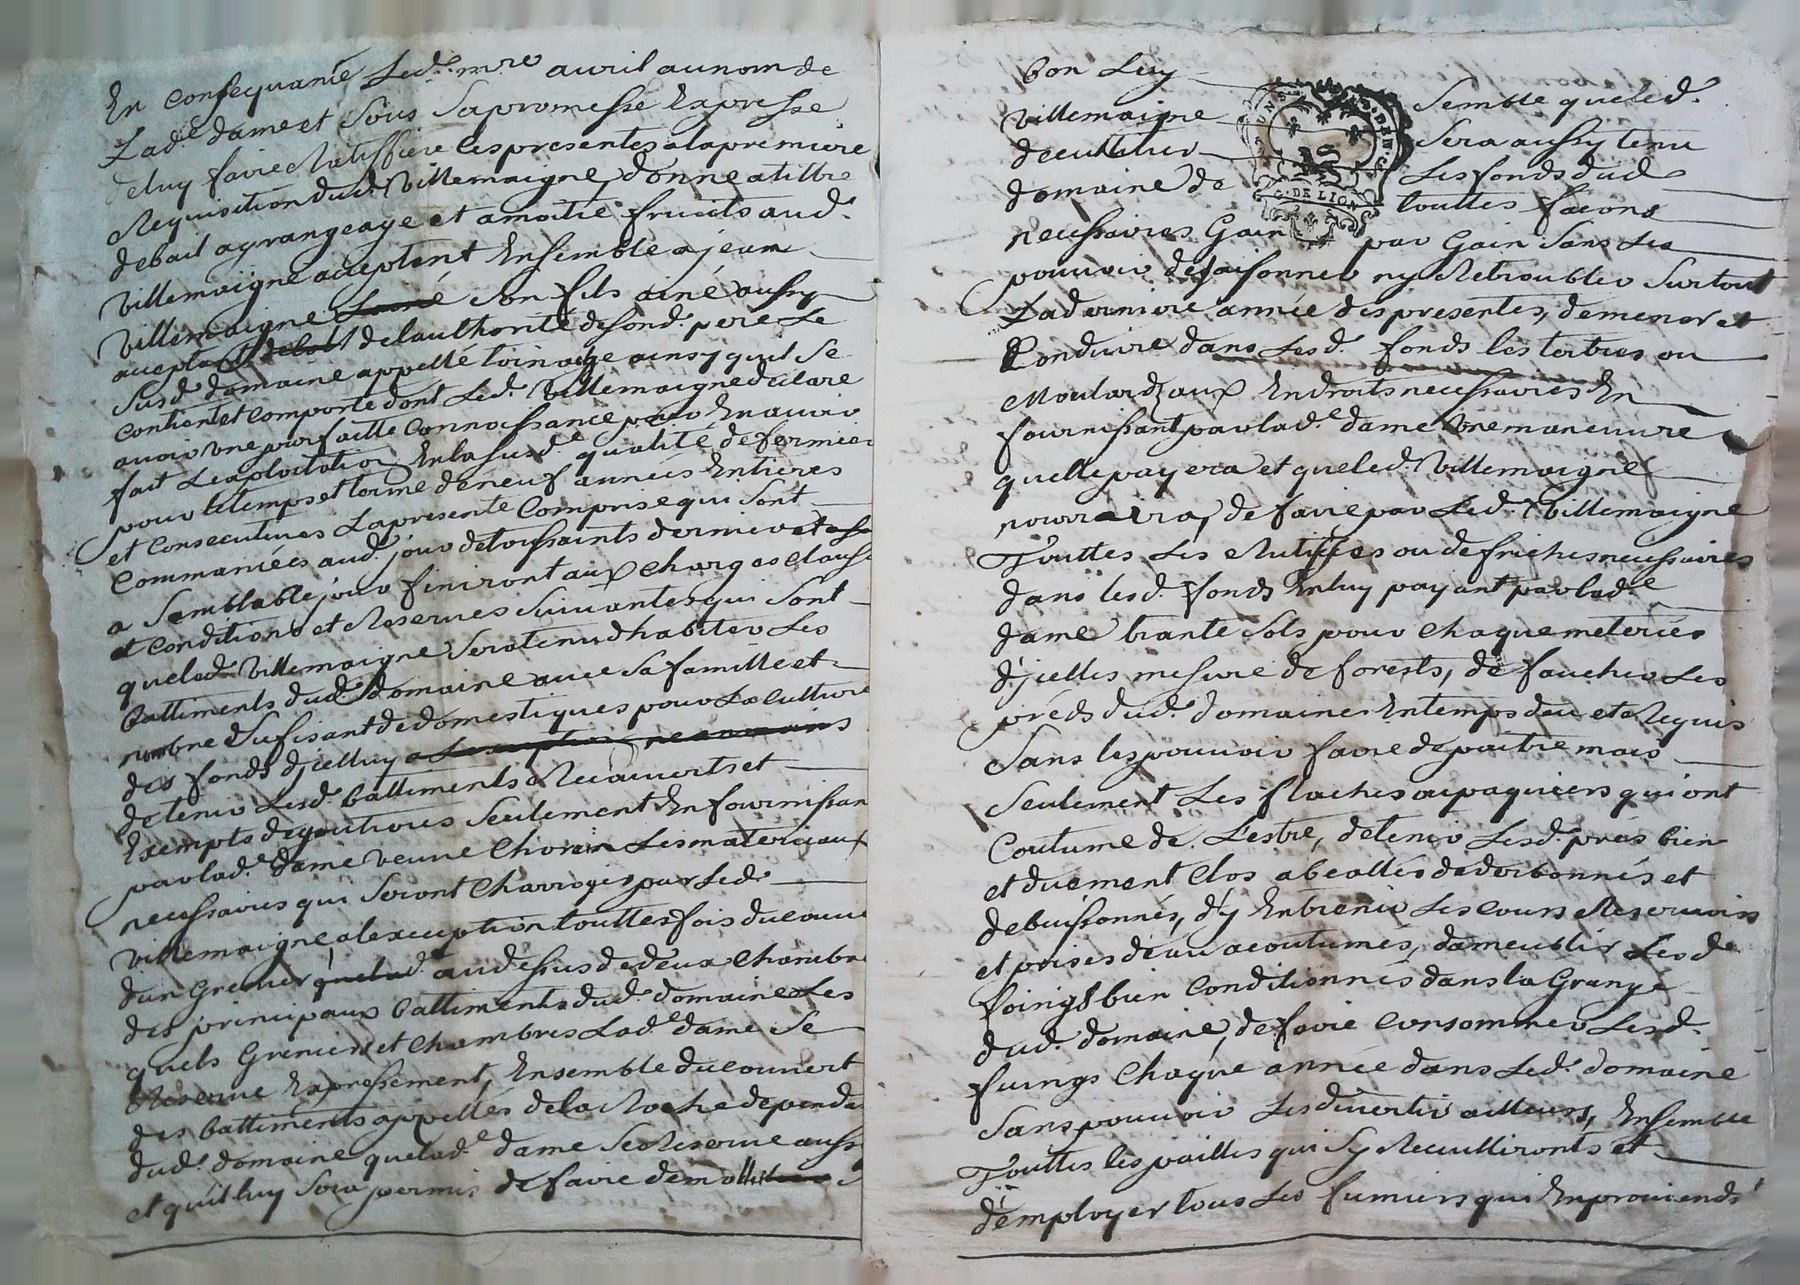 En consequance Led.t m.re avril au nom de
Lad.e dame et Sous Sa promesse Expresse
de luy faire Ratiffier les presentes a la premiere
Requisition dud. Villemaigne, donne a tiltre
de bail a grangeage et a moitié fruits aud.
Villemaigne acceptant Ensemble a jean
Villemaigne son fils ainé aussy
acceptant de lauthorité de sond. pere Le
Susd. domaine appellé toinaige ainsy quil Se
contient et comporte dont Led. Villemaigne declare
avoir une parfaitte connoissance pour En avoir
fait Lexploitation En la Susd.e qualité de fermier
pour le temps et terme de neuf années Entieres
et consecutives La presente Comprise qui Sont
commancées aud. jour de toussaints dernier et
a Semblable jour finiront aux charges clauses
et conditions et Reserves Suivantes qui Sont
que led. Villemaigne Sera tenu dhabiter Les
battiments dud. domaine avec Sa famille et
nombre Sufisant de domestiques pour La culture
des fonds djcelluy
de tenir Lesd. battiments Recouverts et
Exempts de goutieres Seulement En fournissant
par lad.e dame veuve Les materiaux
necessaires qui Seront charroyés par Led.
Villemaigne a lexception touttes fois du couvert
dun Grenier au dessus de deux chambres
des principaux battiments dud. domaine Les
quels Greniers et chambres Lad.e dame Se
Reserve Expressement, Ensemble du couvert
des battiments appellés de la Roche dependant
dud. domaine que lad.e dame Se Reserve aussy
et quil luy Sera permis de faire demollir
bon Luy Semble que led.
Villemaigne Sera aussy tenu
de cultiver Les fonds dud.
domaine de touttes facons
G. DE LION
necessaires Gain par Gain Sans Les
pouvoir desaisonner ny Retroubler Surtout
La derniere année des presentes, de mener et
Conduire dans Lesd. fonds les tertres ou
Moulards aux Endroits necessaires En
fournissant par lad.e dame Une maneuvre
quelle payera et que led. Villemaigne
nourrira, de faire par Led. Villemaigne
Touttes Les Rutisses ou defriches necessaires
dans lesd. fonds En luy payant par lad.e
dame trante Sols pour chaque meterées
djcelles mesure de forests, de faucher Les
préds dud. domaine En temps deu et Requis
Sans les pouvoir faire depaitre mais
Seulement Les flaches ou paquiers qui ont
Coutume de Lestre, de tenir Lesd. prés bien
et duement Clos abeallés dedorbonnés et
debuissonnés, dy Entrenir Les cours Reservoirs
et prises deau acoutumés, dameublir Lesd.
foings bien Conditionnés dans la Grange
dud. domaine, de faire Consommer Lesd.
fuings Chaque année dans Led. domaine
Sans pouvoir Les divertir ailleurs, Ensemble
Touttes les pailles qui Sy Recuilliront et
demployer tous Les fumiers qui En proviendr